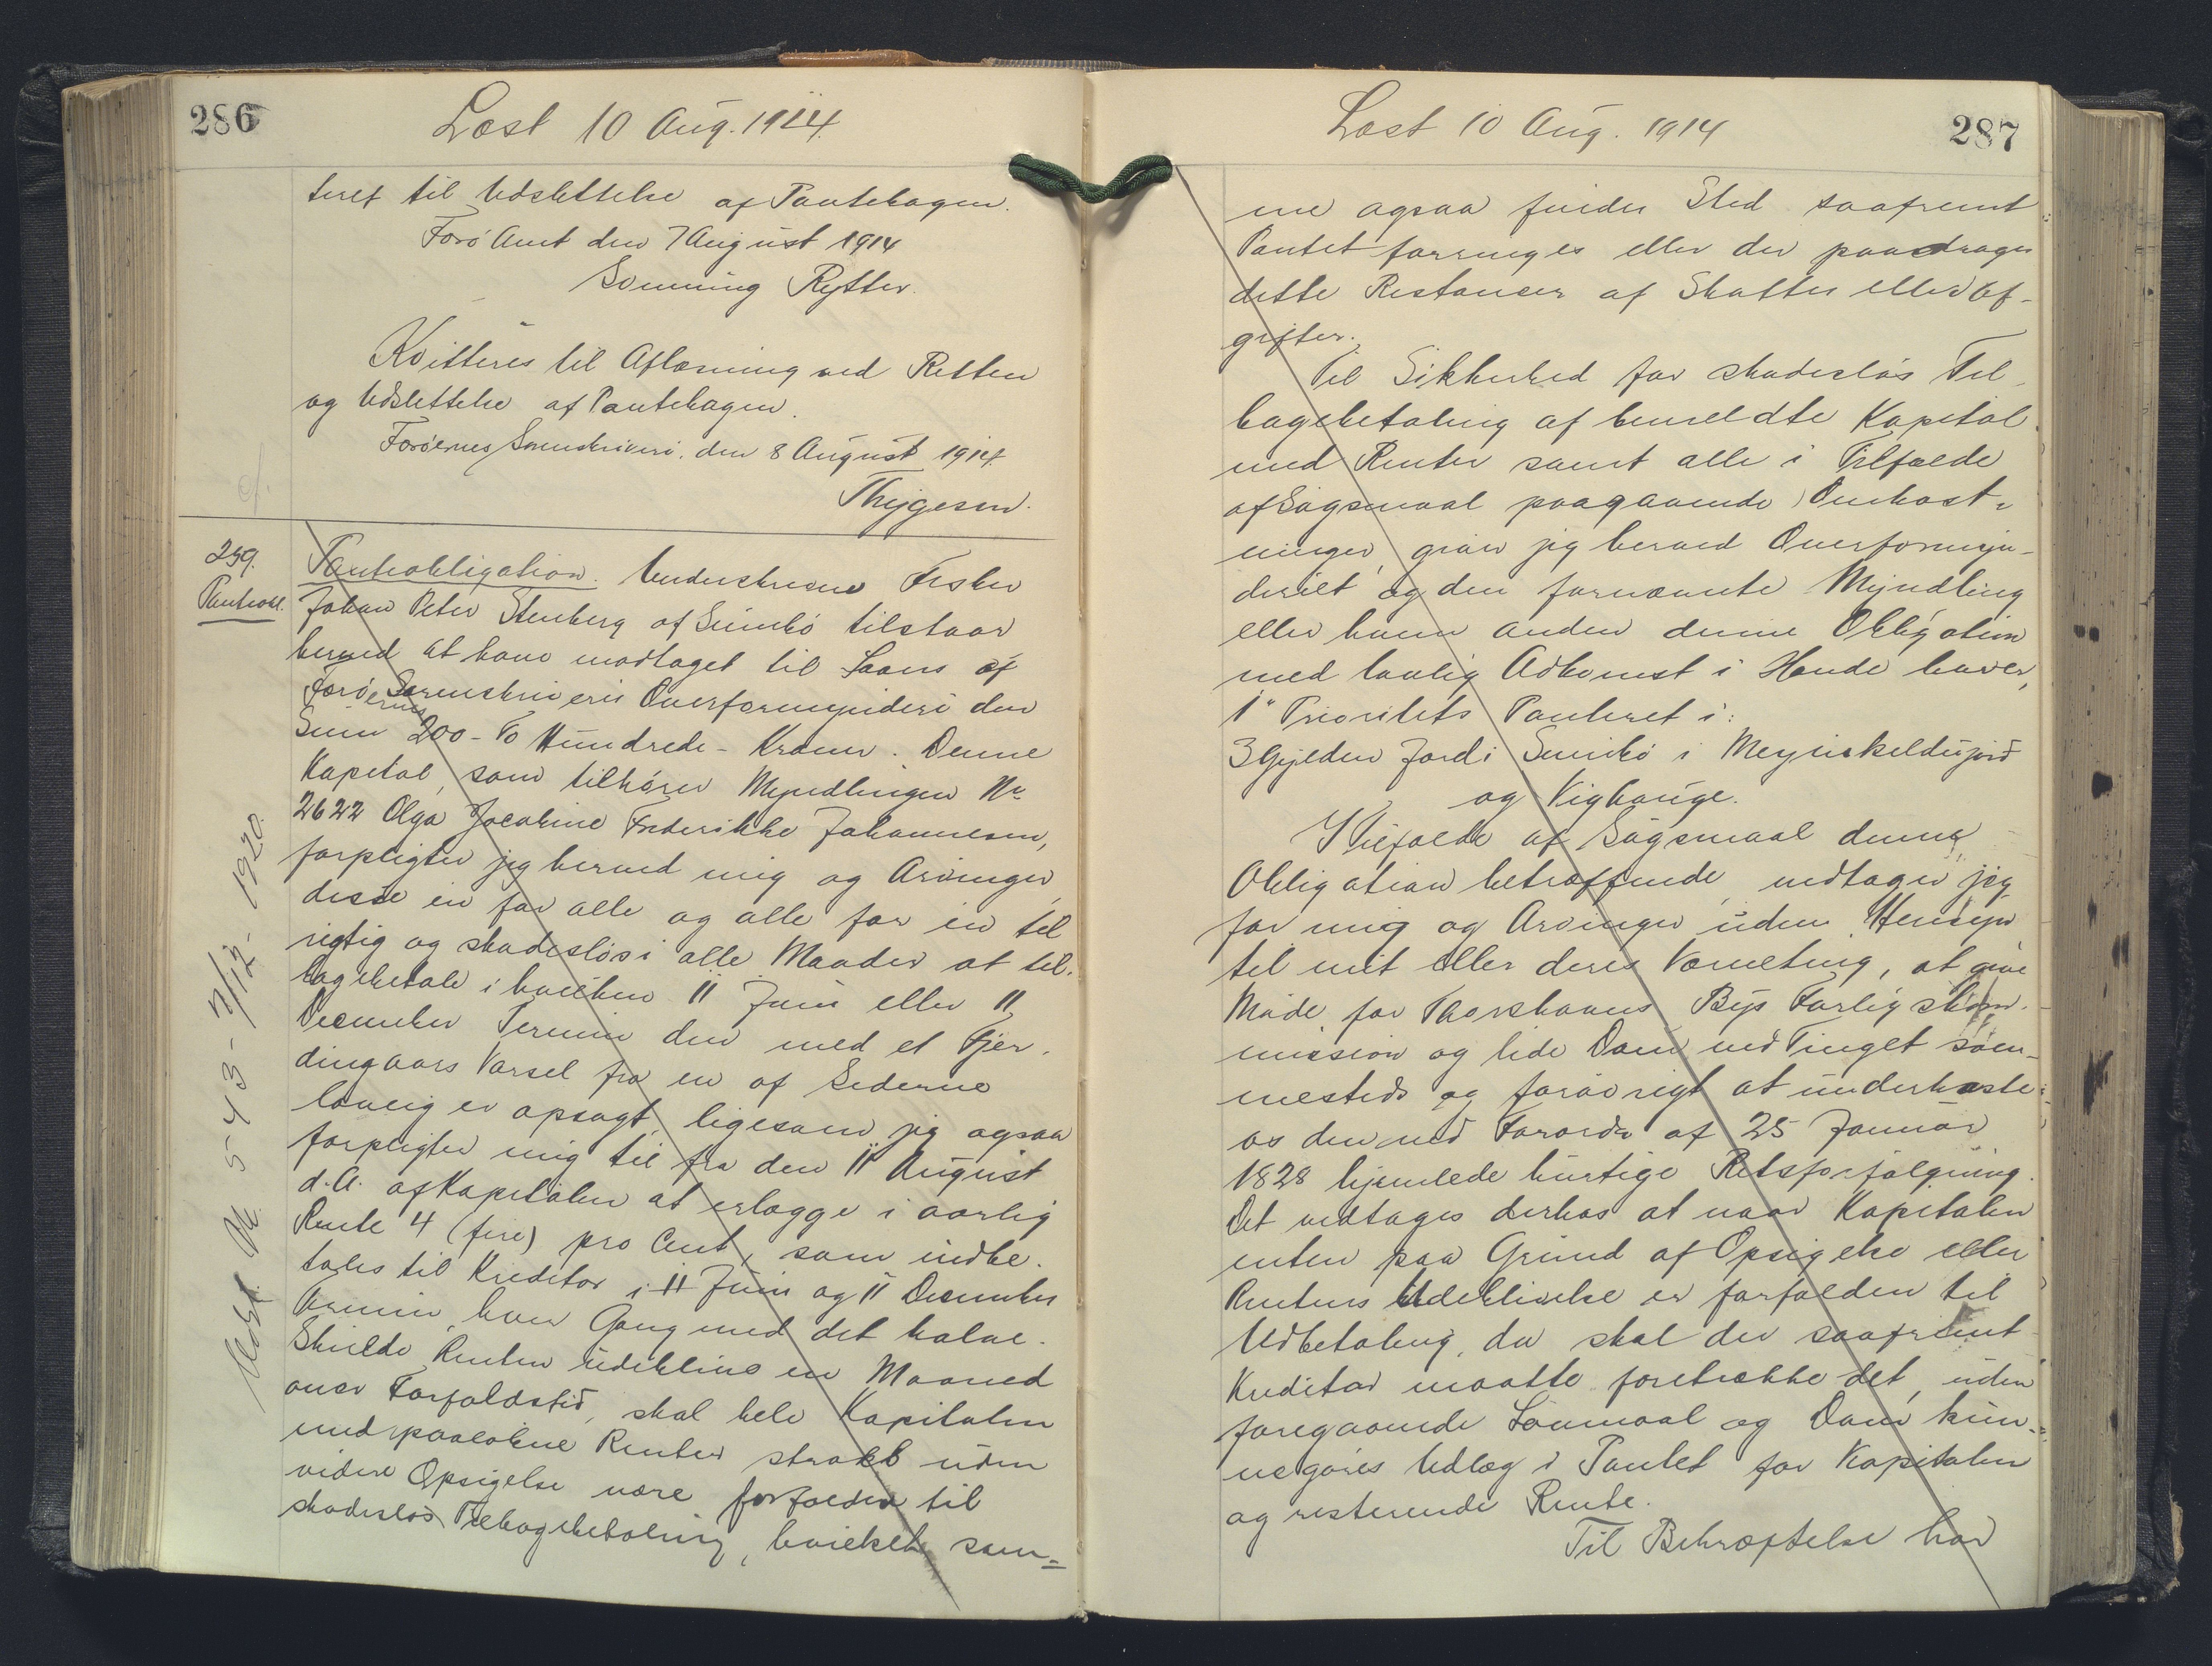 286
Læst 10 Aug. 1914.
teret til Udslettelse af Pantebogen.
Færø Amt den 7 August 1914
Svenning Rytter.
Kvitteres til Aflæsning ved Retten
og Udslettelse af Pantebogen.
Færøernes Sorenskriveri. den 8 August 1914.
Thygesen.
259.
Panteobl.
Panteobligation. Underskrevne Fisker
Johan Peter Stenberg af Sumbø tilstaar
herved at have modtaget til Laans af
Færøernes Sorenskriveris Overformynderi den
Sum 200 - To Hundrede - Kroner. Denne
Kapital, som tilhører Myndlingen Nr.
2622 Olga Jacobine Frederikke Johannesen,
forpligter jeg herved mig og Arvinger,
disse en for alle og alle for en til
rigtig og skadesløs i alle Maader at til-
bagebetale i hvilken 11 Juni eller 11
December Termin den med et Fjer-
dingaars Varsel fra en af Siderne
lovlig er opsagt, ligesom jeg ogsaa
forpligter mig til fra den 11 August
d.A. af Kapitalen at erlægge i aarlig
Rente 4 (fire) pro Cent, som indbe-
tales til Kreditor i 11 Juni og 11 December
Termin, hver Gang med det halve.
Skulde Renten udeblive en Maaned
over Forfaldstid, skal hele Kapitalen
med paaløbne Renter strax uden
videre Opsigelse være forfalden til
skadesløs Tilbagebetaling, hvilket sam=
Udsl. Nr. 543 - 7/12 - 1920.
Læst 10 Aug. 1914
287
me ogsaa finder Sted saafremt
Pantet forringes eller der paadrages
dette Restancer af Skatter eller Af-
gifter.
Til Sikkerhed for skadesløs Til-
bagebetaling af bemeldte Kapital
med Renter samt alle i Tilfælde
af Søgsmaal paagaaende Omkost-
ninger, giver jeg herved Overformyn-
deriet og den fornævnte Myndling
eller hvem anden denne Obligation
med lovlig Adkomst i Hænde haver,
1ste Prioritets Panteret i:
3 Gylden Jord i Sumbø i
og Vighauge.
I Tilfælde af Søgsmaal denne
Obligation betræffende, vedtager jeg
for mig og Arvinger uden Hensyn
til mit eller deres Værneting, at give
Møde for Thorshavns Bys Forligskom-
mission og lide Dom ved Tinget sam-
mesteds og forøvrigt at underkaste
os den ved Forordn. af 25 Januar
1828 hjemlede hurtige Retsforfølgning.
Det vedtages derhos at naar Kapitalen
enten paa Grund af Opsigelse eller
Rentens Udeblivelse er forfalden til
Udbetaling, da skal der saafremt
Kreditor maatte foretrække det, uden
foregaaende Lovmaal og Dom kun-
ne gøres Udlæg i Pantet for Kapitalen
og resterende Rente.
Til Bekræftelse har